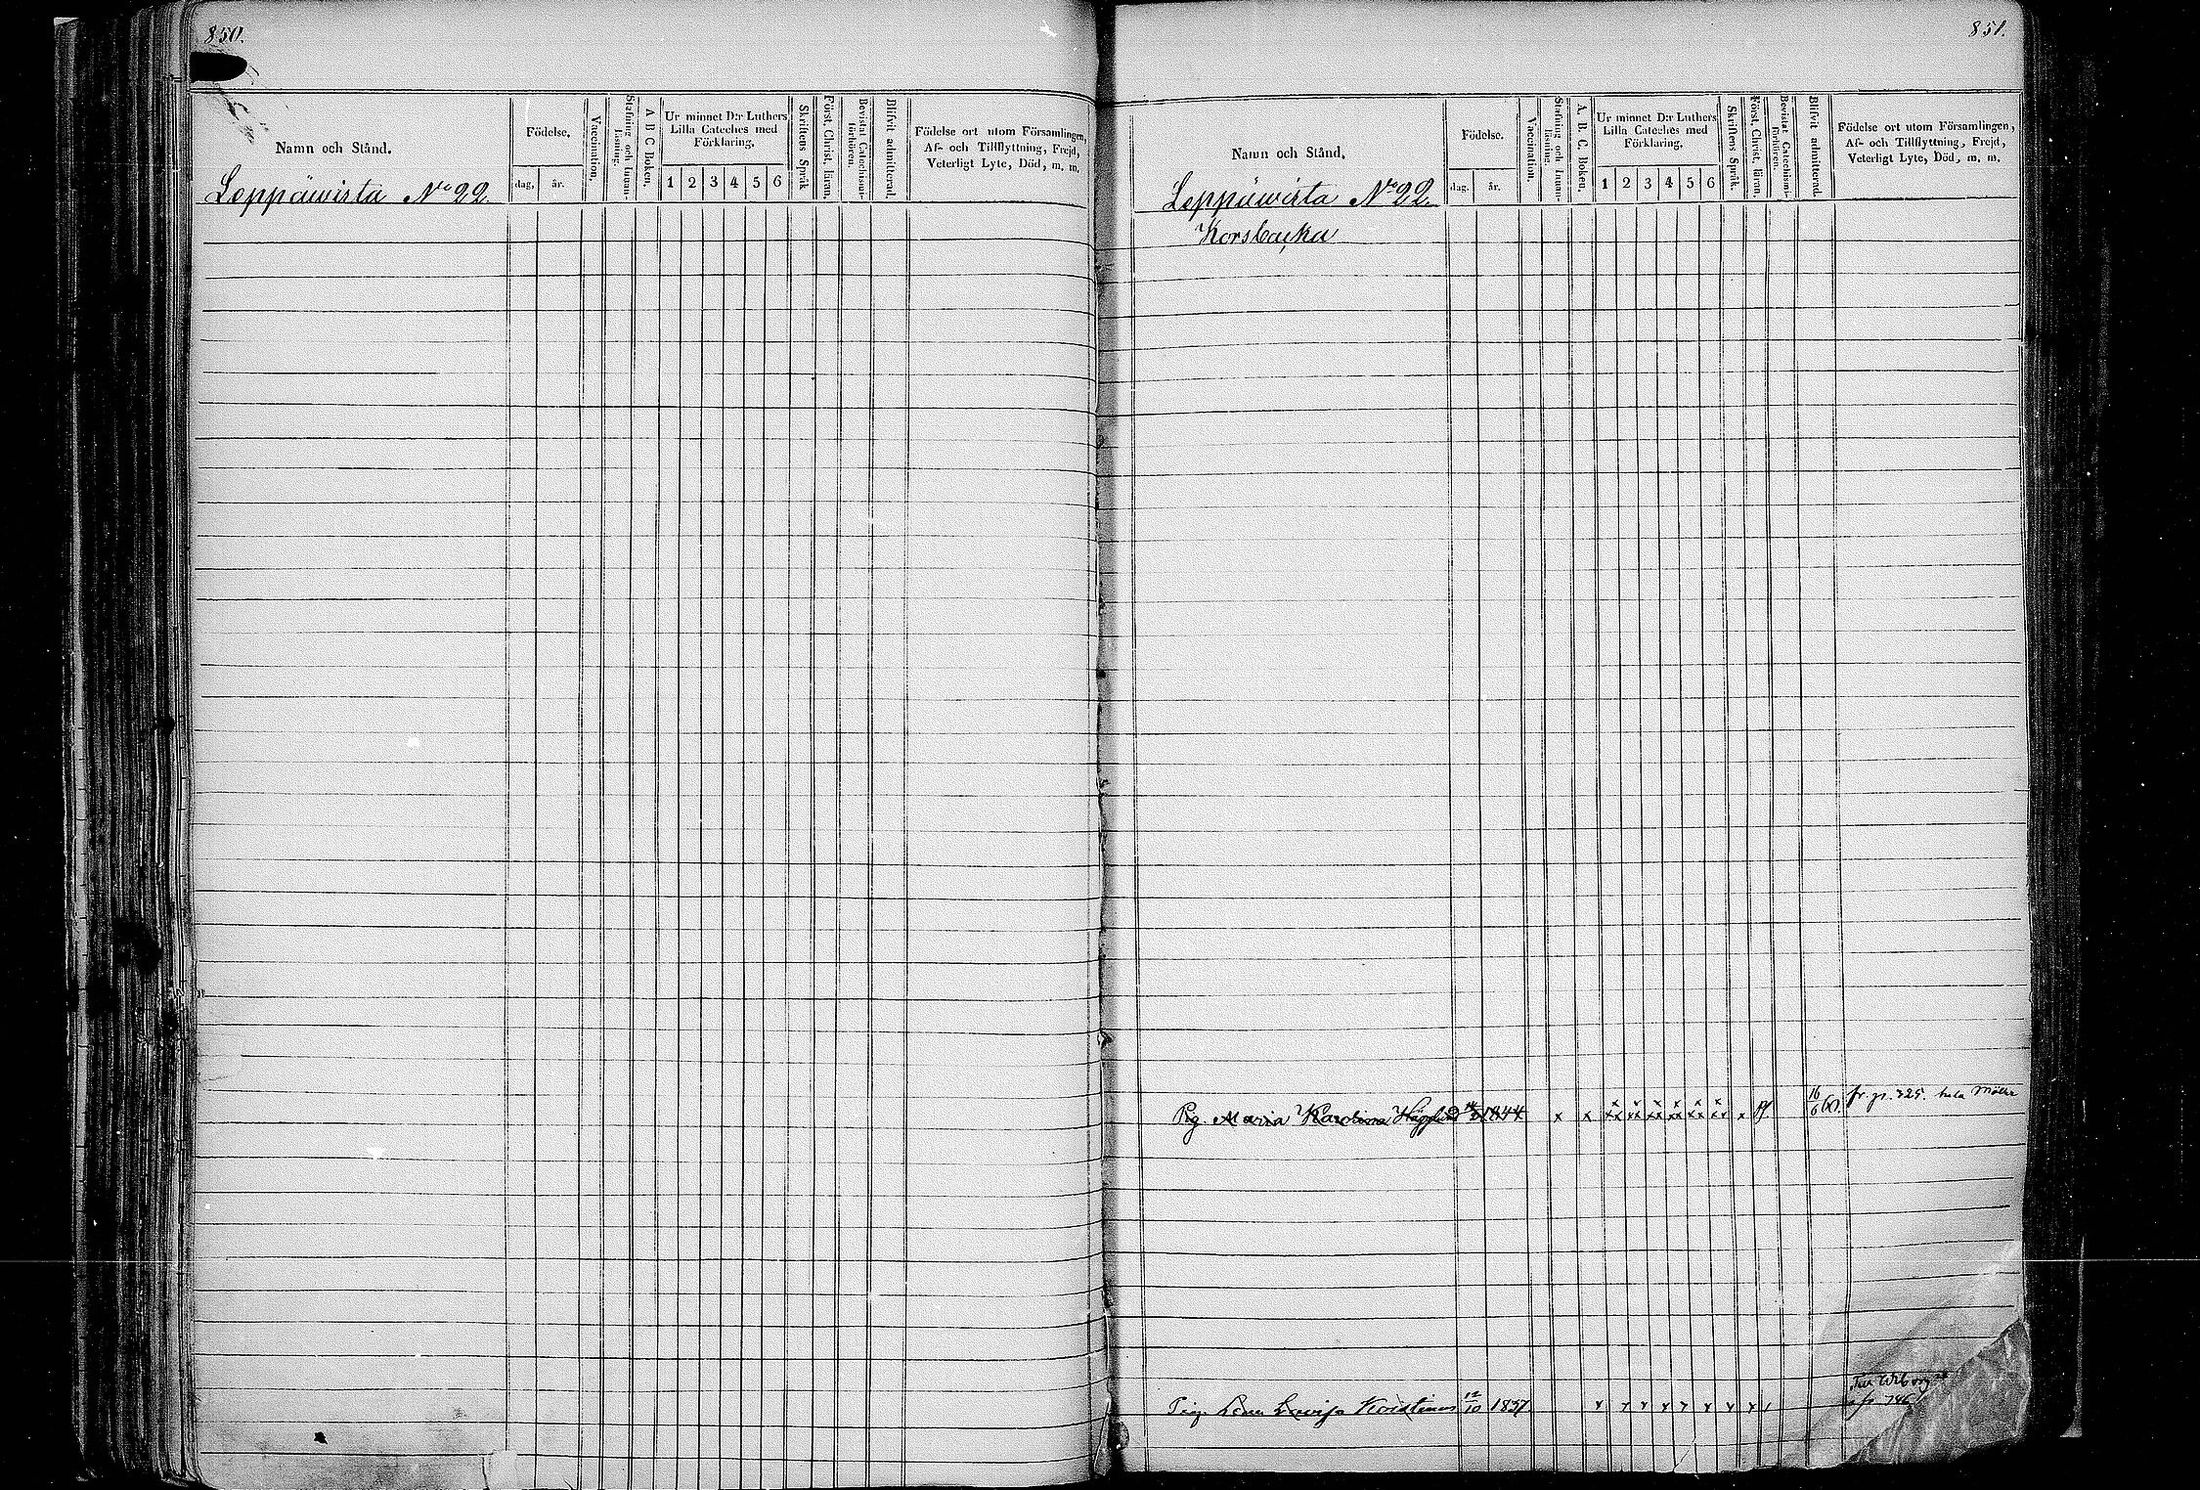 850.
Namn och Stånd.
Födelse.
dag, år.
Vaccination.
Stafning och Innan-
läsning.
A B C Boken.
Ur minnet D:r Luthers
Lilla Cateches med
Förklaring.
1 2 3 4 5 6
Skriftens Språk
Först. Christ. läran.
Bevistat Catechismi-
förhören.
Blifvit admitterad.
Födelse ort utom Församlingen,
Af- och Tillflyttning, Frejd,
Veterligt Lyte, Död, m. m.
Leppäwirta No 22.
851.
Namn och Stånd.
Födelse.
dag. år.
Vaccination.
Stafning och Innan-
läsning.
A. B. C. Boken.
Ur minnet D:r Luthers
Lilla Cateches med
Förklaring.
1 2 3 4 5 6
Skriftens Språk.
Först. Christ. läran.
Bevistat Catechismi-
förhören.
Blifvit admitterad.
Födelse ort utom Församlingen,
Af- och Tillflyttning, Frejd,
Veterligt Lyte, Död, m. m.
Leppäwirta No 22.
Korsbacka
Pig. Maria Karolina Hägglund 1844 x x x x x x x x x 16/6 60. fr. p. 325.
Pig. Lena Lovisa Kristina 12/10 1837. Wiborg
746